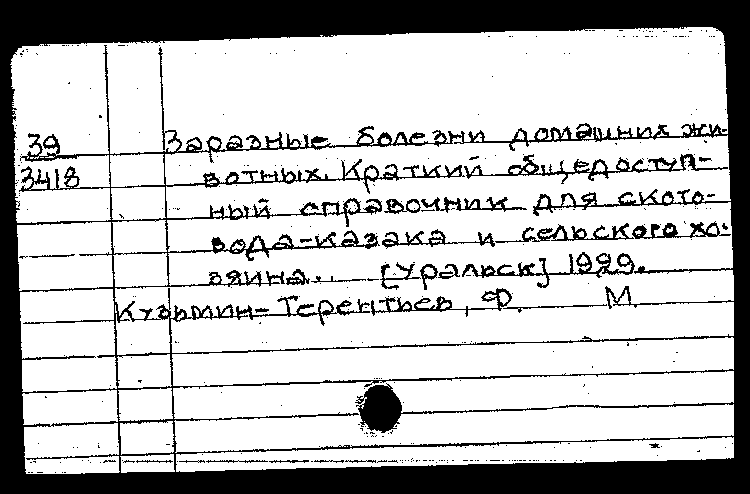 39
3418
Заразные болезни домашних жи-
вотных. Краткий общедоступ-
ный справочник для ското-
вода-казака и сельского хо-
зяина.. [Уральск] 1929.
Кузьмин-Терентьев, Ф. М.